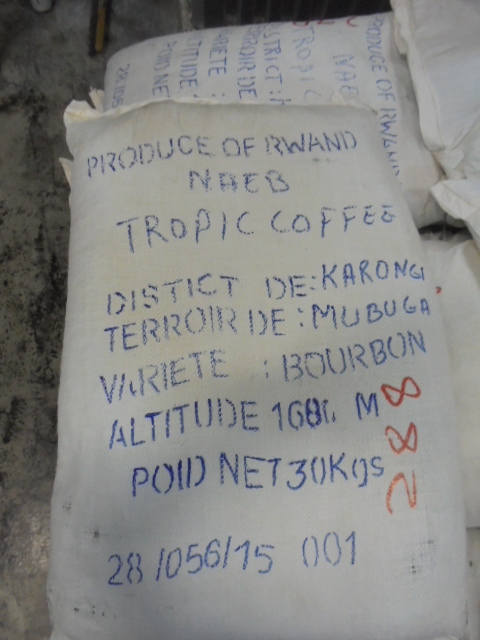 PRODUCE OF RWAND
NAEB
TROPIC COFFEE
DISTICT DE: KARONGI
TERROIR DE: MUBUGA
VARIETE : BOURBON
ALTITUDE M
POID NET 30Kgs
288
28/056/15 001
PRODUCE OF RWAND
NAEB
TROPIC
TERROIR DE
ETE :
POID NE